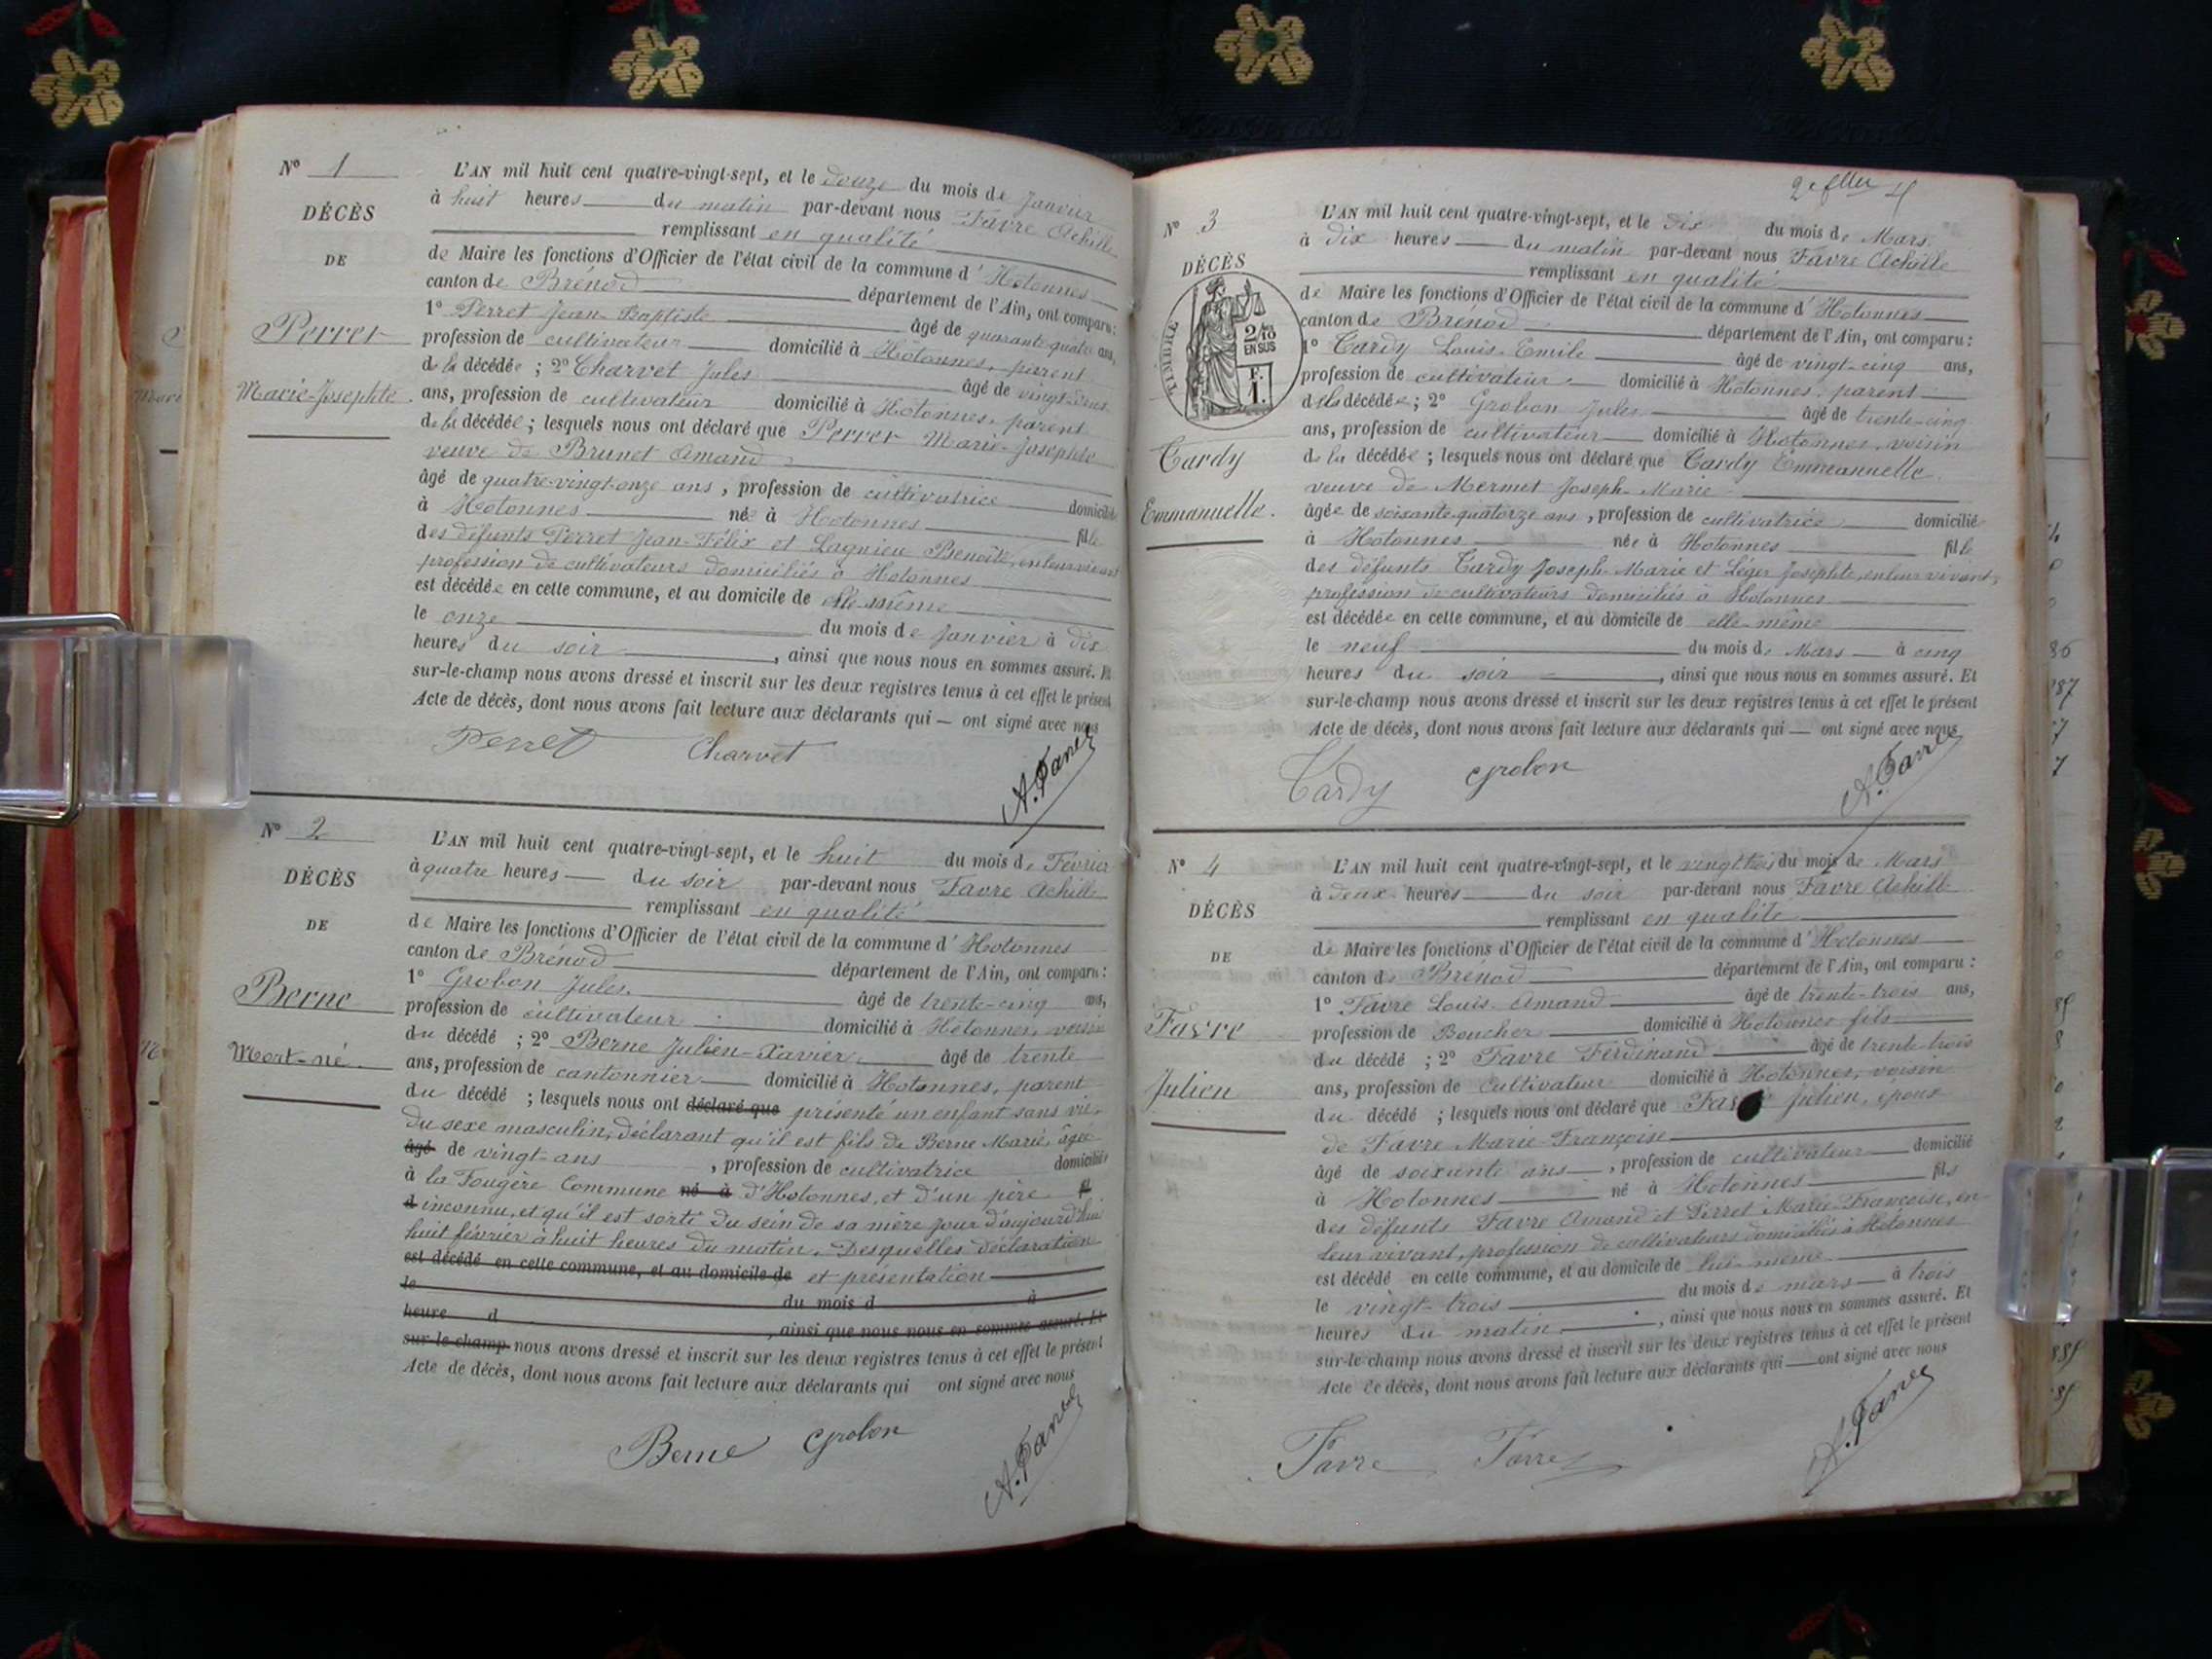 N° 1
DÉCÈS
DE
Perret
Marie-Josephte.
L'AN mil huit cent quatre-vingt-sept, et le douze du mois de Janvier
à huit heures du matin par-devant nous Favre Achille
remplissant en qualité
de Maire les fonctions d'Officier de l'état civil de la commune d'Hotonnes
canton de Brénod département de l'Ain, ont comparu:
1° Perret Jean-Baptiste âgé de quarante quatre ans,
profession de cultivateur domicilié à Hotonnes, parent
de la décédée; 2° Charvet Jules âgé de
ans, profession de cultivateur domicilié à Hotonnes, parent
de la décédée; lesquels nous ont déclaré que Perret Marie-Josephte
veuve de Brunet Amand
âgé de quatre-vingt-onze ans, profession de cultivatrice domicilié
à Hotonnes née à Hotonnes fille
des défunts Perret Jean-Félix et Lagnieu Benoîte, en leur vivant
profession de cultivateurs domiciliés à Hotonnes
est décédée en cette commune, et au domicile de elle-même
le onze du mois de Janvier à dix
heures du soir, ainsi que nous nous en sommes assuré. Et
sur-le-champ nous avons dressé et inscrit sur les deux registres tenus à cet effet le présent
Acte de décès, dont nous avons fait lecture aux déclarants qui — ont signé avec nous
Perret Charvet A. Favre
N° 2
DÉCÈS
DE
Berne
Mort-né.
L'AN mil huit cent quatre-vingt-sept, et le huit du mois de Février
à quatre heures du soir par-devant nous Favre Achille
remplissant en qualité
de Maire les fonctions d'Officier de l'état civil de la commune d'Hotonnes
canton de Brénod département de l'Ain, ont comparu:
1° Grobon Jules. âgé de trente-cinq ans,
profession de cultivateur domicilié à Hotonnes, voisin
du décédé; 2° Berne Julien-Xavier. âgé de trente
ans, profession de cantonnier domicilié à Hotonnes, parent
du décédé; lesquels nous ont déclaré que présenté un enfant sans vie,
du sexe masculin, déclarant qu'il est fils de Berne Marie, âgée
âgé de vingt-ans, profession de cultivatrice domiciliée
à la Fougère Commune né à d'Hotonnes, et d'un père fil
d inconnu, et qu'il est sorti du sein de sa mère jour d'aujourd'hui
huit février à huit heures du matin. Desquelles déclaration
est décédé en cette commune, et au domicile de et présentation
le du mois d à
heure d, ainsi que nous nous en sommes assuré. Et
sur-le-champ nous avons dressé et inscrit sur les deux registres tenus à cet effet le présent
Acte de décès, dont nous avons fait lecture aux déclarants qui ont signé avec nous
Berne Grobon A. Favre
N° 3
DÉCÈS
TIMBRE
2/10
EN SUS
F.
1.
Tardy
Emmanuelle.
L'AN mil huit cent quatre-vingt-sept, et le dix du mois de Mars.
à dix heures du matin par-devant nous Favre Achille
remplissant en qualité
de Maire les fonctions d'Officier de l'état civil de la commune d'Hotonnes
canton de Brénod département de l'Ain, ont comparu:
1° Tardy Louis-Emile âgé de vingt-cinq ans,
profession de cultivateur domicilié à Hotonnes, parent
de la décédée; 2° Grobon Jules âgé de trente-cinq
ans, profession de cultivateur domicilié à Hotonnes, voisin
de la décédée; lesquels nous ont déclaré que Tardy Emmeanuelle
veuve de Mermet Joseph-Marie
âgée de soixante-quatorze ans, profession de cultivatrice domicilié
à Hotonnes née à Hotonnes fille
des défunts Tardy Joseph-Marie et Léger Josephte, en leur vivant,
profession de cultivateurs domiciliés à Hotonnes
est décédée en cette commune, et au domicile de elle-même
le neuf du mois de Mars à cinq
heures du soir, ainsi que nous nous en sommes assuré. Et
sur-le-champ nous avons dressé et inscrit sur les deux registres tenus à cet effet le présent
Acte de décès, dont nous avons fait lecture aux déclarants qui — ont signé avec nous
Tardy Grobon A. Favre
N° 4
DÉCÈS
DE
Favre
Julien
L'AN mil huit cent quatre-vingt-sept, et le vingt trois du mois de Mars
à deux heures du soir par-devant nous Favre Achille
remplissant en qualité
de Maire les fonctions d'Officier de l'état civil de la commune d'Hotonnes
canton de Brénod département de l'Ain, ont comparu:
1° Favre Louis-Amand âgé de trente-trois ans,
profession de Boucher domicilié à Hotonnes fils
du décédé; 2° Favre Ferdinand âgé de trente trois
ans, profession de Cultivateur domicilié à Hotonnes, voisin
du décédé; lesquels nous ont déclaré que Favre Julien, époux
de Favre Marie-Françoise
âgé de soixante ans, profession de cultivateur domicilié
à Hotonnes né à Hotonnes fils
des défunts Favre Amand et Perret Marie-Françoise, en
leur vivant, profession de cultivateurs domiciliés à Hotonnes
est décédé en cette commune, et au domicile de lui-même
le vingt-trois du mois de mars à trois
heures du matin, ainsi que nous nous en sommes assuré. Et
sur-le-champ nous avons dressé et inscrit sur les deux registres tenus à cet effet le présent
Acte de décès, dont nous avons fait lecture aux déclarants qui — ont signé avec nous
Favre Favre A. Favre